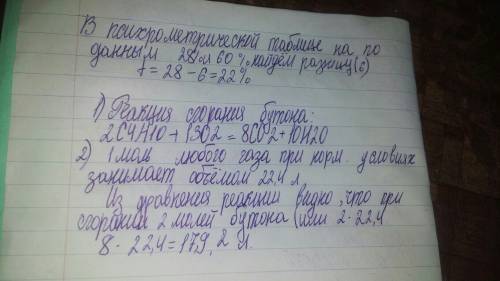 В психрометрической таблице на по
данным 28% и 60% найдём разницу (6)
t = 28 - 6 = 22%
1) Реакция сгорания бутона:
2C4H10 + 13O2 = 8CO2 + 10H2O
2) 1 моль любого газа при норм. условиях
занимает объёмом 22,4 л.
Из уравнения реакции видно, что при
сгорании 2 молей бутона (или 2·22,4
8 · 22,4 = 179,2 л.